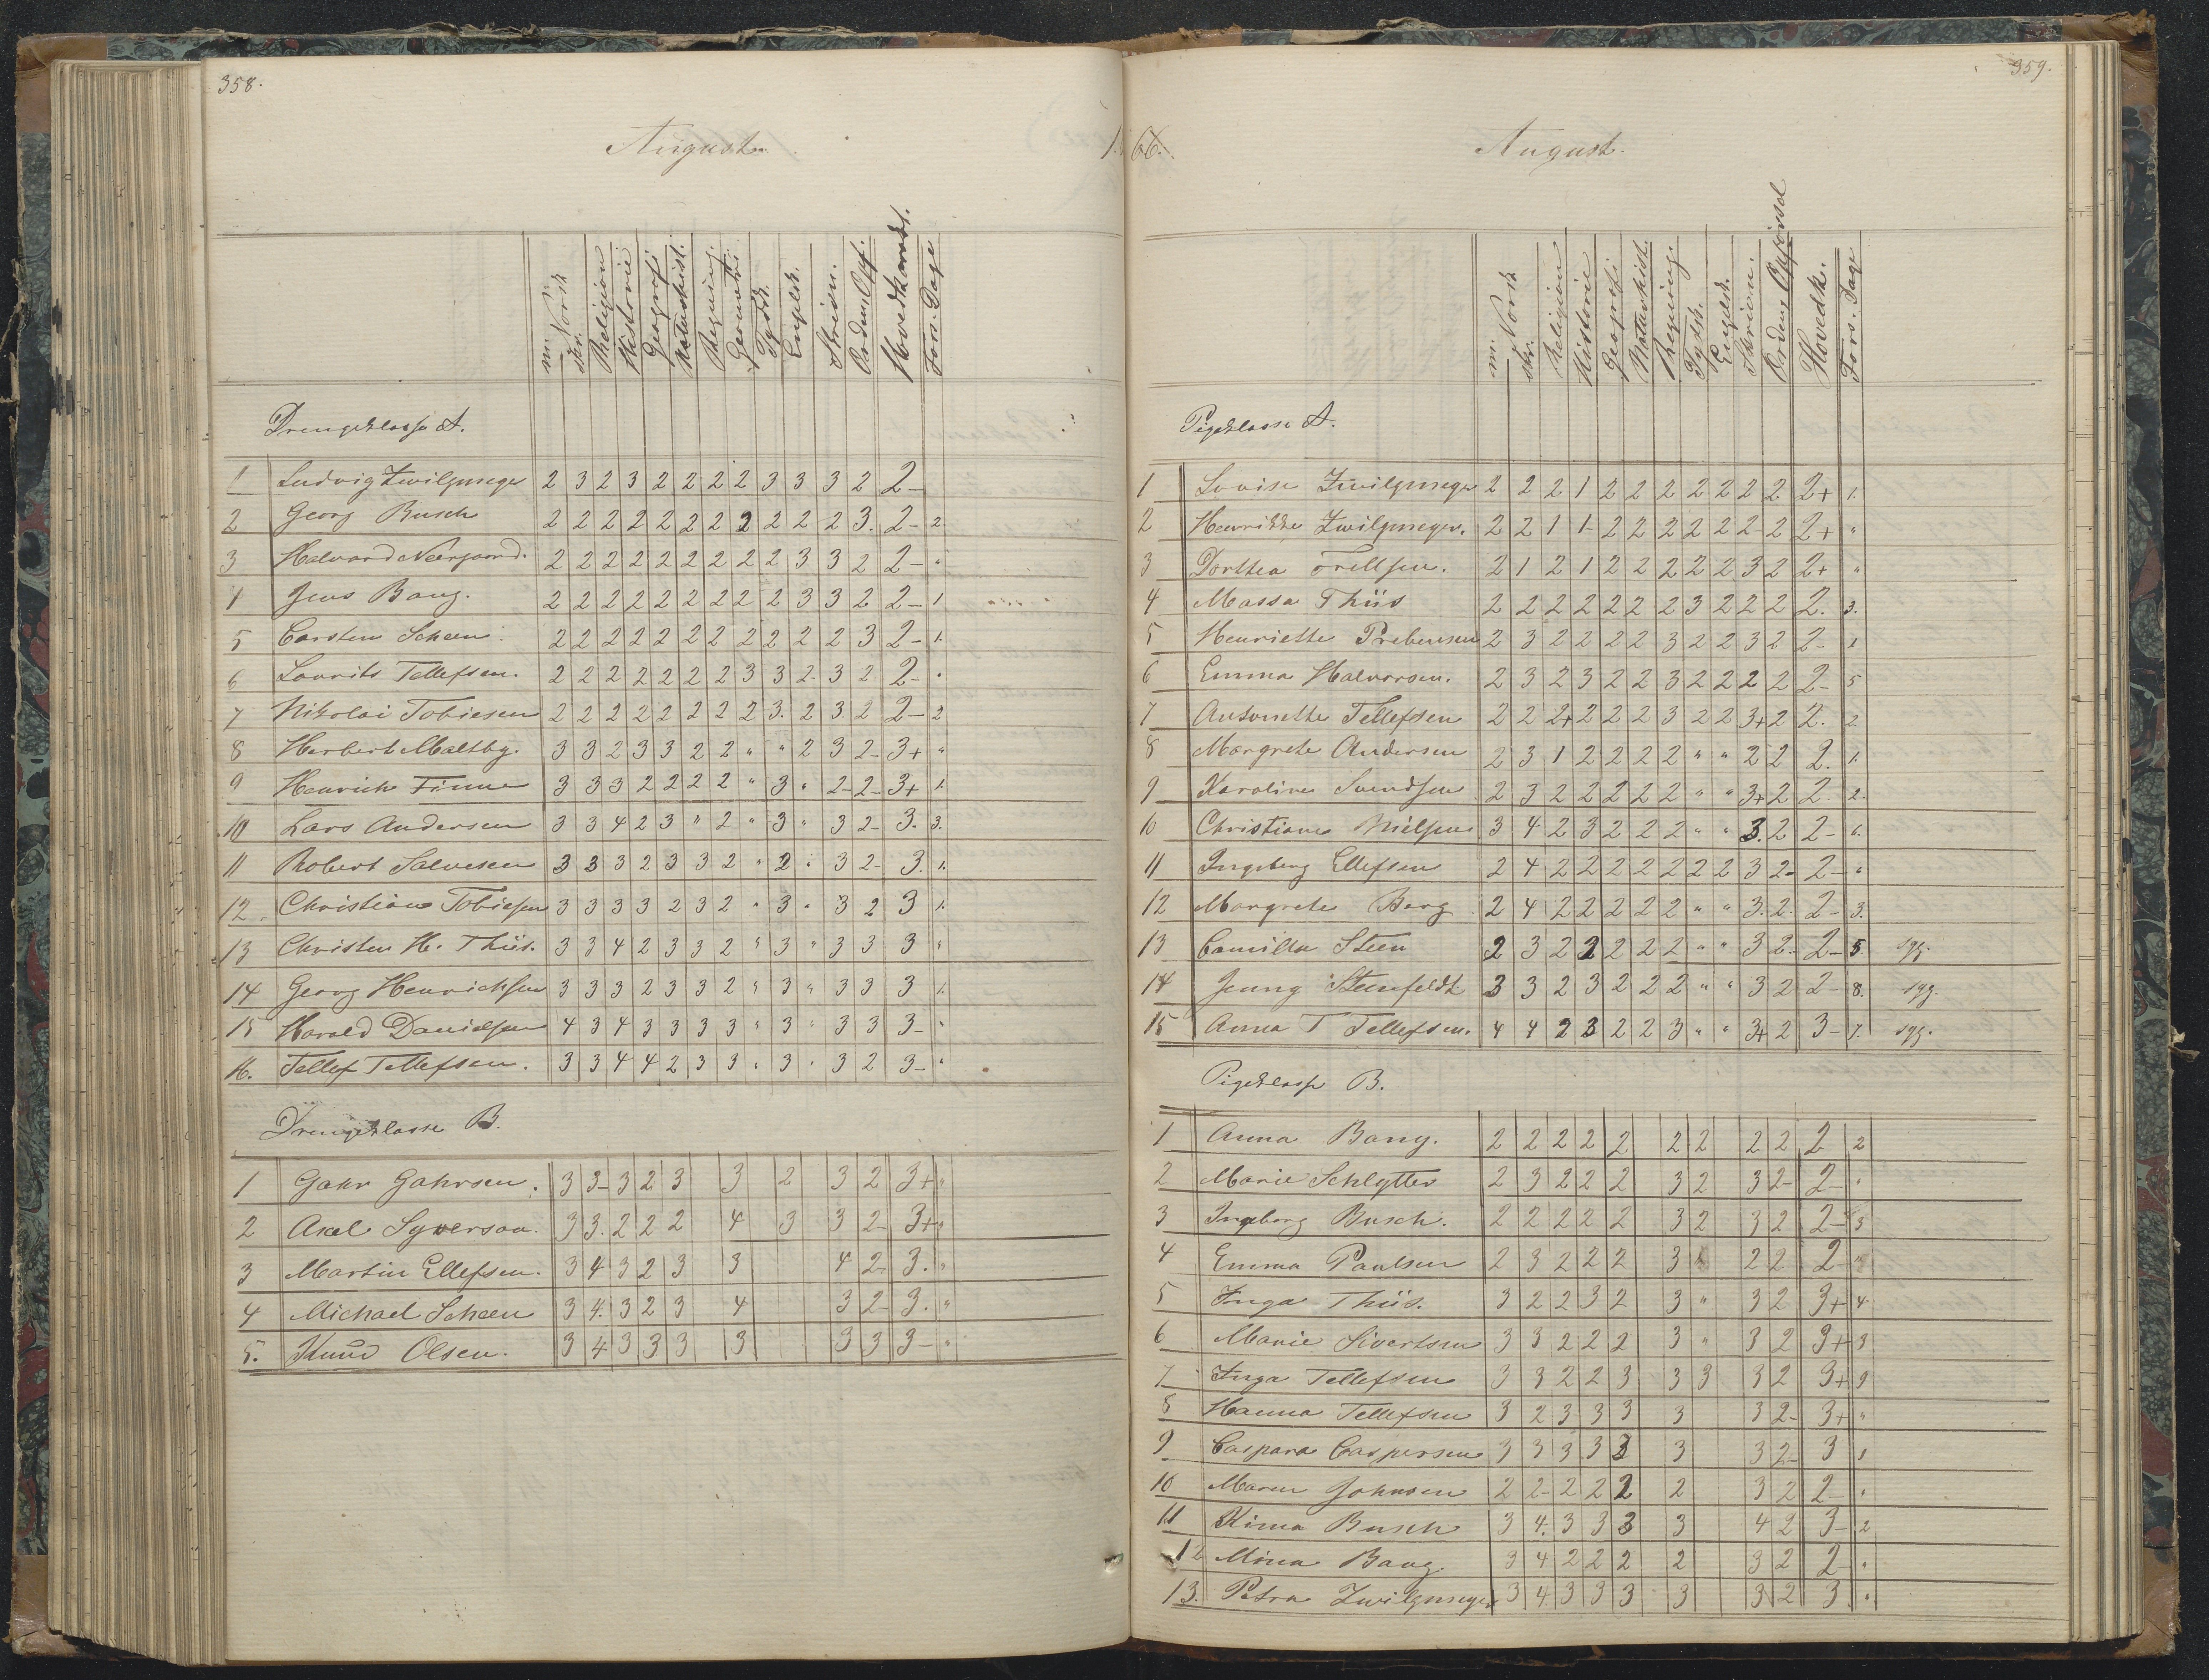 358.
August.
m. Norsk
skr.
Religion
Historie
Geografi
Naturhist.
Regning
Geometri
Tydsk.
Engelsk.
Skrivn.
Orden, Opf.
Hovedkarakt.
Fors. Dage
Drengeklasse A.
1 Ludvig Zwilgmeyer 2 3 2 3 2 2 2 2 3 3 3 2 2-
2 Georg Busch 2 2 2 2 2 2 2 2 2 2 2 3. 2- 2.
3 Halvard Neergaard. 2 2 2 2 2 2 2 2 2 3 3 2 2- "
4 Jens Bang. 2 2 2 2 2 2 2 2 2 3 3 2 2- 1
5 Carsten Scheen. 2 2 2 2 2 2 2 2 2 2 2 3 2- 1.
6 Lourits Tellefsen. 2 2 2 2 2 2 2 3 3 2- 3 2 2- "
7 Nikolai Tobiesen 2 2 2 2 2 2 2 2 3. 2 3. 2 2- 2
8 Herbert Maltby. 3 3 2 3 3 2 2 " " 2 3 2- 3+ "
9 Henrich Finne 3 3 3 2 2 2 2 " 3 " 2- 2- 3+ 1.
10 Lars Andersen 3 3 4 2 3 " 2 " 3 " 3 2- 3. 3.
11 Robert Salvesen 3 3 3 2 3 3 2 " 2 " 3 2- 3. 1.
12. Christian Tobiesen 3 3 3 3 2 3 2 " 3 " 3 2 3 1.
13 Christen H. Thiis. 3 3 4 2 3 3 2 " 3 " 3 3 3 "
14 Georg Henrichsen 3 3 3 2 3 3 2 " 3 " 3 3 3 1.
15 Harald Danielsen 4 3 4 3 3 3 3 " 3 " 3 3 3- "
16. Tellef Tellefsen. 3 3 4 4 2 3 3 " 3 " 3 2 3- "
Drengeklasse B.
1 Gahr Gahrsen. 3 3- 3 2 3 3 2 3 2 3+ "
2 Axel Syverson. 3 3. 2 2 2 4 3 3 2- 3+ "
3 Martin Ellefsen. 3 4 3 2 3 3 4 2- 3. "
4 Michael Scheen 3 4. 3 2 3 4 3 2- 3. "
5. Knud Olsen. 3 4 3 3 3 3 3 3 3- "
359.
1866.
August.
m. Norsk
skr.
Religion
Historie
Geografi
Naturhist.
Regning.
Tydsk.
Engelsk.
Skrivn.
Orden, Opførsel
Hovedk.
Fors. Dage
Pigeklasse A.
1 Lovise Zwilgmeyer 2 2 2 1 2 2 2 2 2 2 2 2+ 1.
2 Henrikke Zwilgmeyer. 2 2 1 1- 2 2 2 2 2 2- 2 2+ "
3 Dorthea Trellsen. 2 1 2 1 2 2 2 2 2 3 2 2+ "
4 Massa Thiis 2 2 2 2 2 2 2 3 2 2 2 2. 3.
5 Henriette Prebensen 2 3 2 2 2 2 3 2 2 3 2 2- 1
6 Emma Halvorsen. 2 3 2 3 2 2 3 2 2 2 2 2- 5
7 Antonette Tellefsen 2 2 2+ 2 2 2 3 2 2 3+ 2 2. 2
8 Margrete Andersen 2 3 1 2 2 2 2 " " 2 2 2. 1.
9 Karoline Svendsen 2 3 2 2 2 2 2 " " 3+ 2 2. 2.
10 Christiane Nielsen 3 4 2 3 2 2 2 " " 3. 2 2- 6.
11 Ingeborg Ellefsen 2 4 2 2 2 2 2 2 2 3 2- 2- "
12 Margrete Berg 2 4 2 2 2 2 2 " " 3. 2. 2- 3.
13 Camilla Steen 2 3 2 2 2 2 2 " " 3 2- 2- 5. syg.
14 Jenny Steenfeldt 3 3 2 3 2 2 2 " " 3 2 2- 8. syg.
15 Anna T Tellefsen. 4 4 2 3 2 2 3 " " 3+ 2 3- 7. syg.
Pigeklasse B.
1 Anna Bang. 2 2 2 2 2 2 2 2 2 2 2
2 Marie Schlytter 2 3 2 2 2 3 2 3 2- 2- "
3 Ingeborg Busch. 2 2 2 2 2 3 2 3 2 2- 3
4 Emma Paulsen 2 3 2 2 2 3 " 2 2 2- "
5 Inga Thiis. 3 2 2 3 2 3 " 3 2 3+ 4.
6 Marie Sivertsen 3 3 2 2 2 3 " 3 2 3+ 3
7 Inga Tellefsen 3 3 2 2 3 3 3 3 2 3+ 9
8 Hanna Tellefsen 3 2 3 3 3 3 3 2- 3+ "
9 Caspara Caspersen 3 3 3 3 3 3 3 2- 3 1
10 Maren Johnsen 2 2- 2 2 2 2 3 2 2- "
11 Kima Busch 3 4. 3 3 3 3 4 2 3- 2
12 Mina Bang. 3 4 2 2 2 2 3 2 2- "
13. Petra Zwilgmeyer 3 4. 3 3 3 3 3 2 3. "